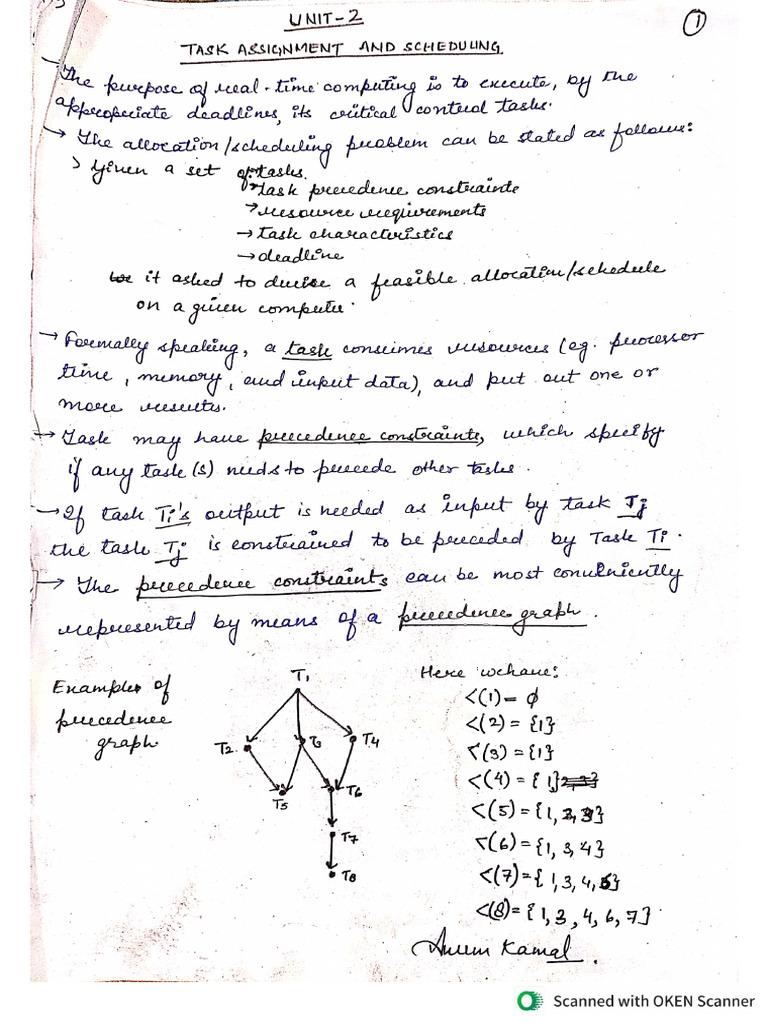 UNIT-2
1
TASK ASSIGNMENT AND SCHEDULING
The purpose of real-time computing is to execute, by the
appropriate deadlines, its critical control tasks.
→ The allocation/scheduling problem can be stated as follows:
> Given a set of tasks.
→ task precedence constraints
→ resource requirements
→ task characteristics
→ deadline
it asked to devise a feasible allocation/schedule
on a given computer.
→ Formally speaking, a task consumes resources (eg. processor
time, memory, and input data), and put out one or
more results.
→ Task may have precedence constraints, which specify
if any task(s) needs to precede other tasks.
→ If task Ti's output is needed as input by task Tj
the task Tj is constrained to be preceded by Task Ti.
→ The precedence constraints can be most conveniently
represented by means of a precedence graph.
Example of
precedence
graph
T1
T2
T3
T4
T5
T6
T7
T8
Here we have:
<(1) = φ
<(2) = {1}
<(3) = {1}
<(4) = {1}
<(5) = {1, 2, 3}
<(6) = {1, 3, 4}
<(7) = {1, 3, 4, 6}
<(8) = {1, 3, 4, 6, 7}
Kamal
Scanned with OKEN Scanner